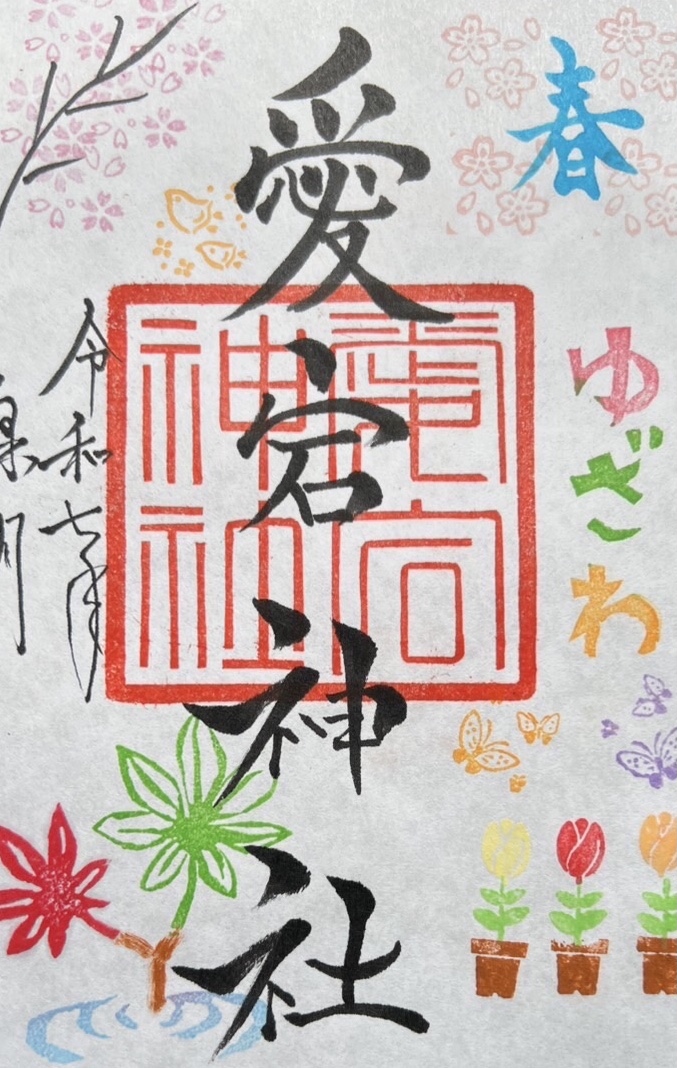 春
ゆざわ
愛宕神社
愛宕
神社
令和七年